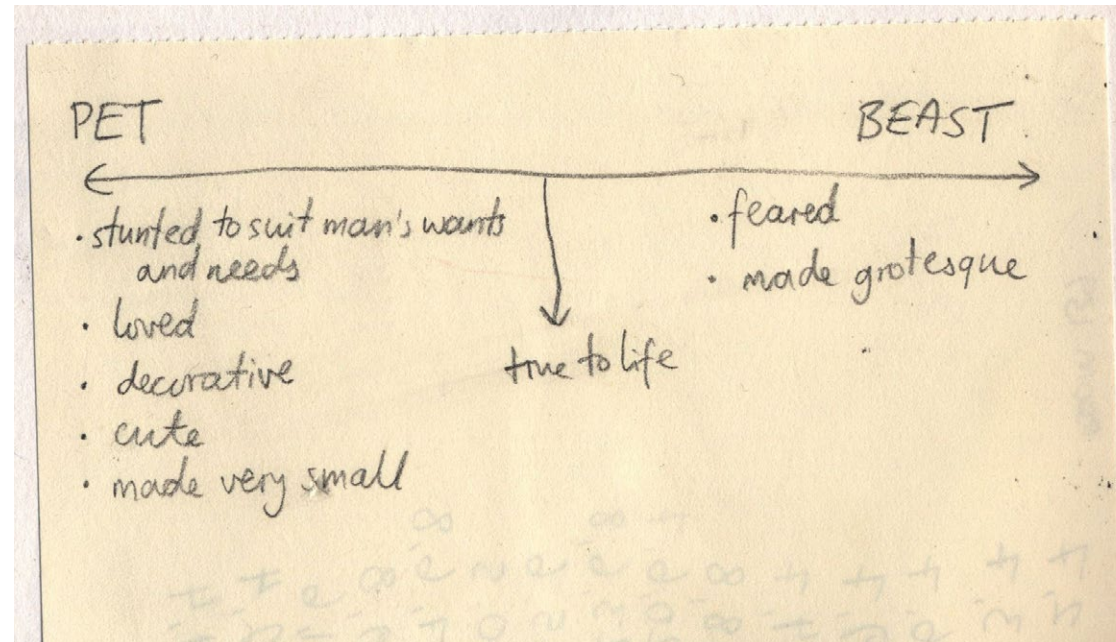 PET
BEAST
• stunted to suit man's wants
and needs
• loved
• decorative
• cute
• made very small
true to life
• feared
• made grotesque